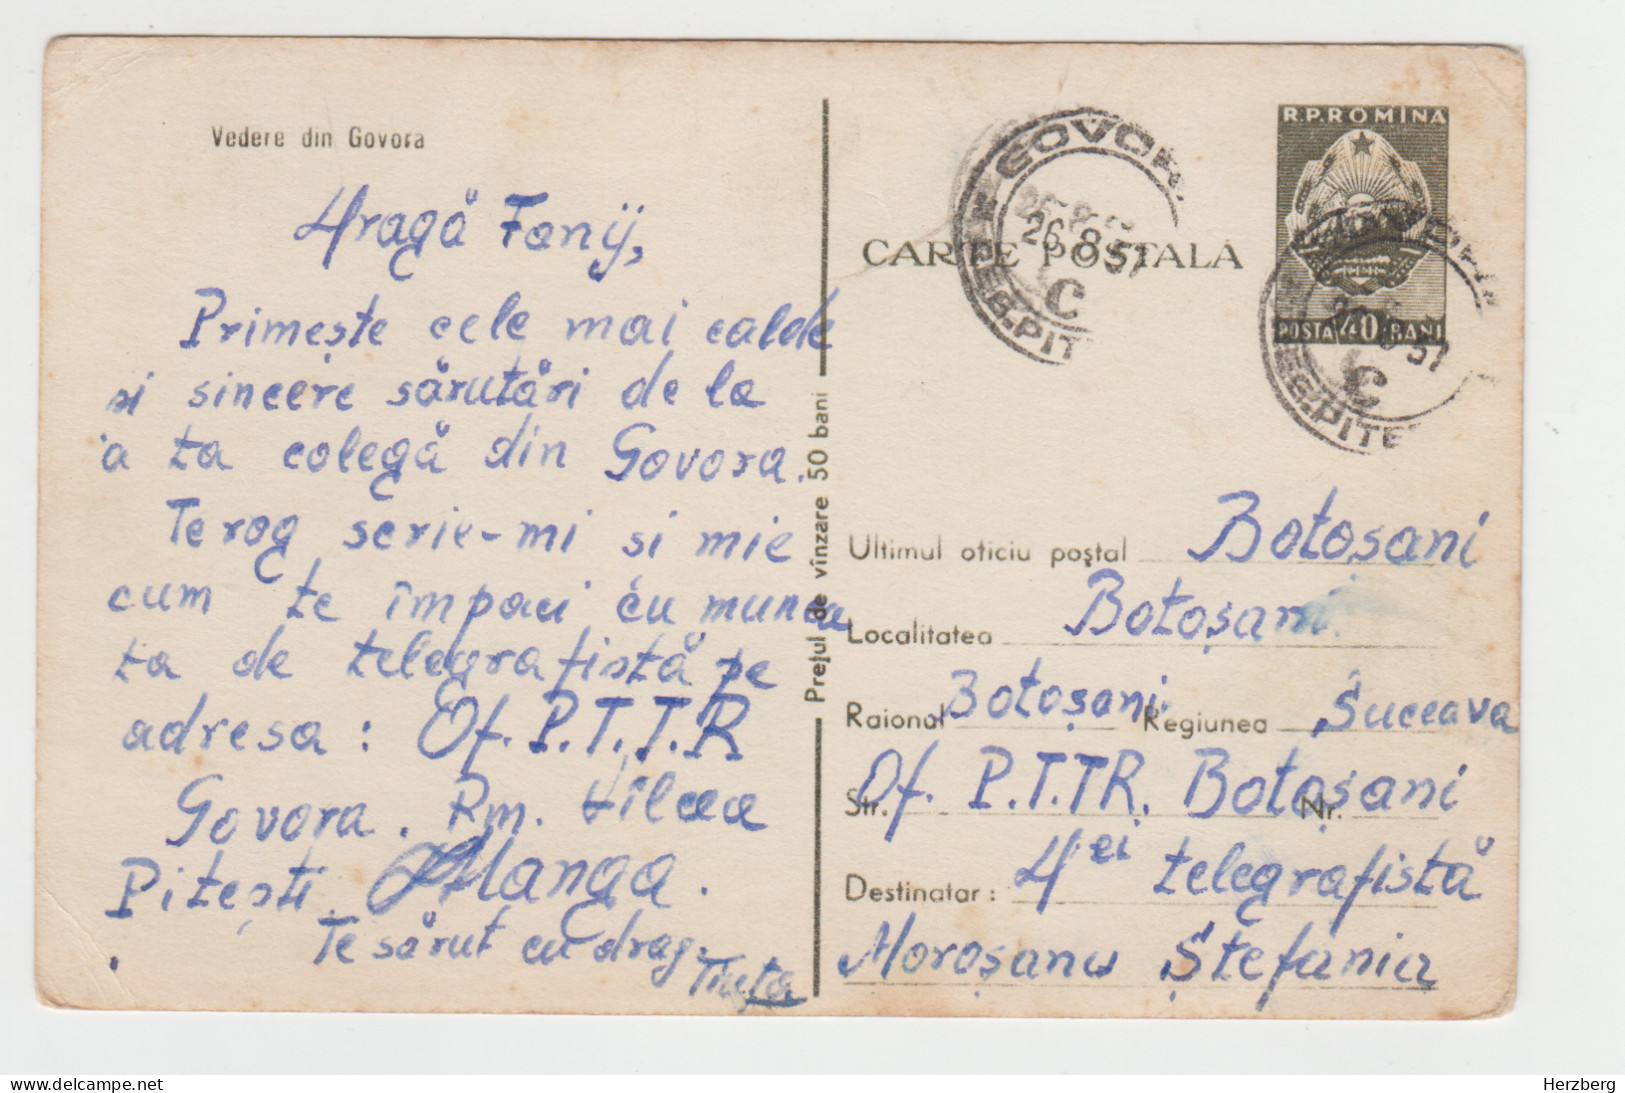 Vedere din Govora
Dragă Fanij,
Primește cele mai calde
si sincere sărutări de la
a ta colegă din Govora.
Te rog scrie-mi si mie
cum te împaci cu munca
ta de telegrafistă pe
adresa: Of. P.T.T.R
Govora. Rm. Vîlcea
Pitești. Manga.
Te sărut cu drag.
Tința
Prețul de vînzare 50 bani
CARTE POȘTALĂ
GOVORA
26.8.57
C
REG.PIT
R.P.ROMÎNA
POSTA 40 BANI
57
C
REG.PITE
Ultimul oficiu poștal Botoșani
Localitatea Botoșani
Raionul Botoșani Regiunea Suceava
Str. Of. P.T.T.R. Botoșani Nr.
Destinatar: D ei telegrafistă
Moroșanu Ștefania
delcampe.net
Herzberg